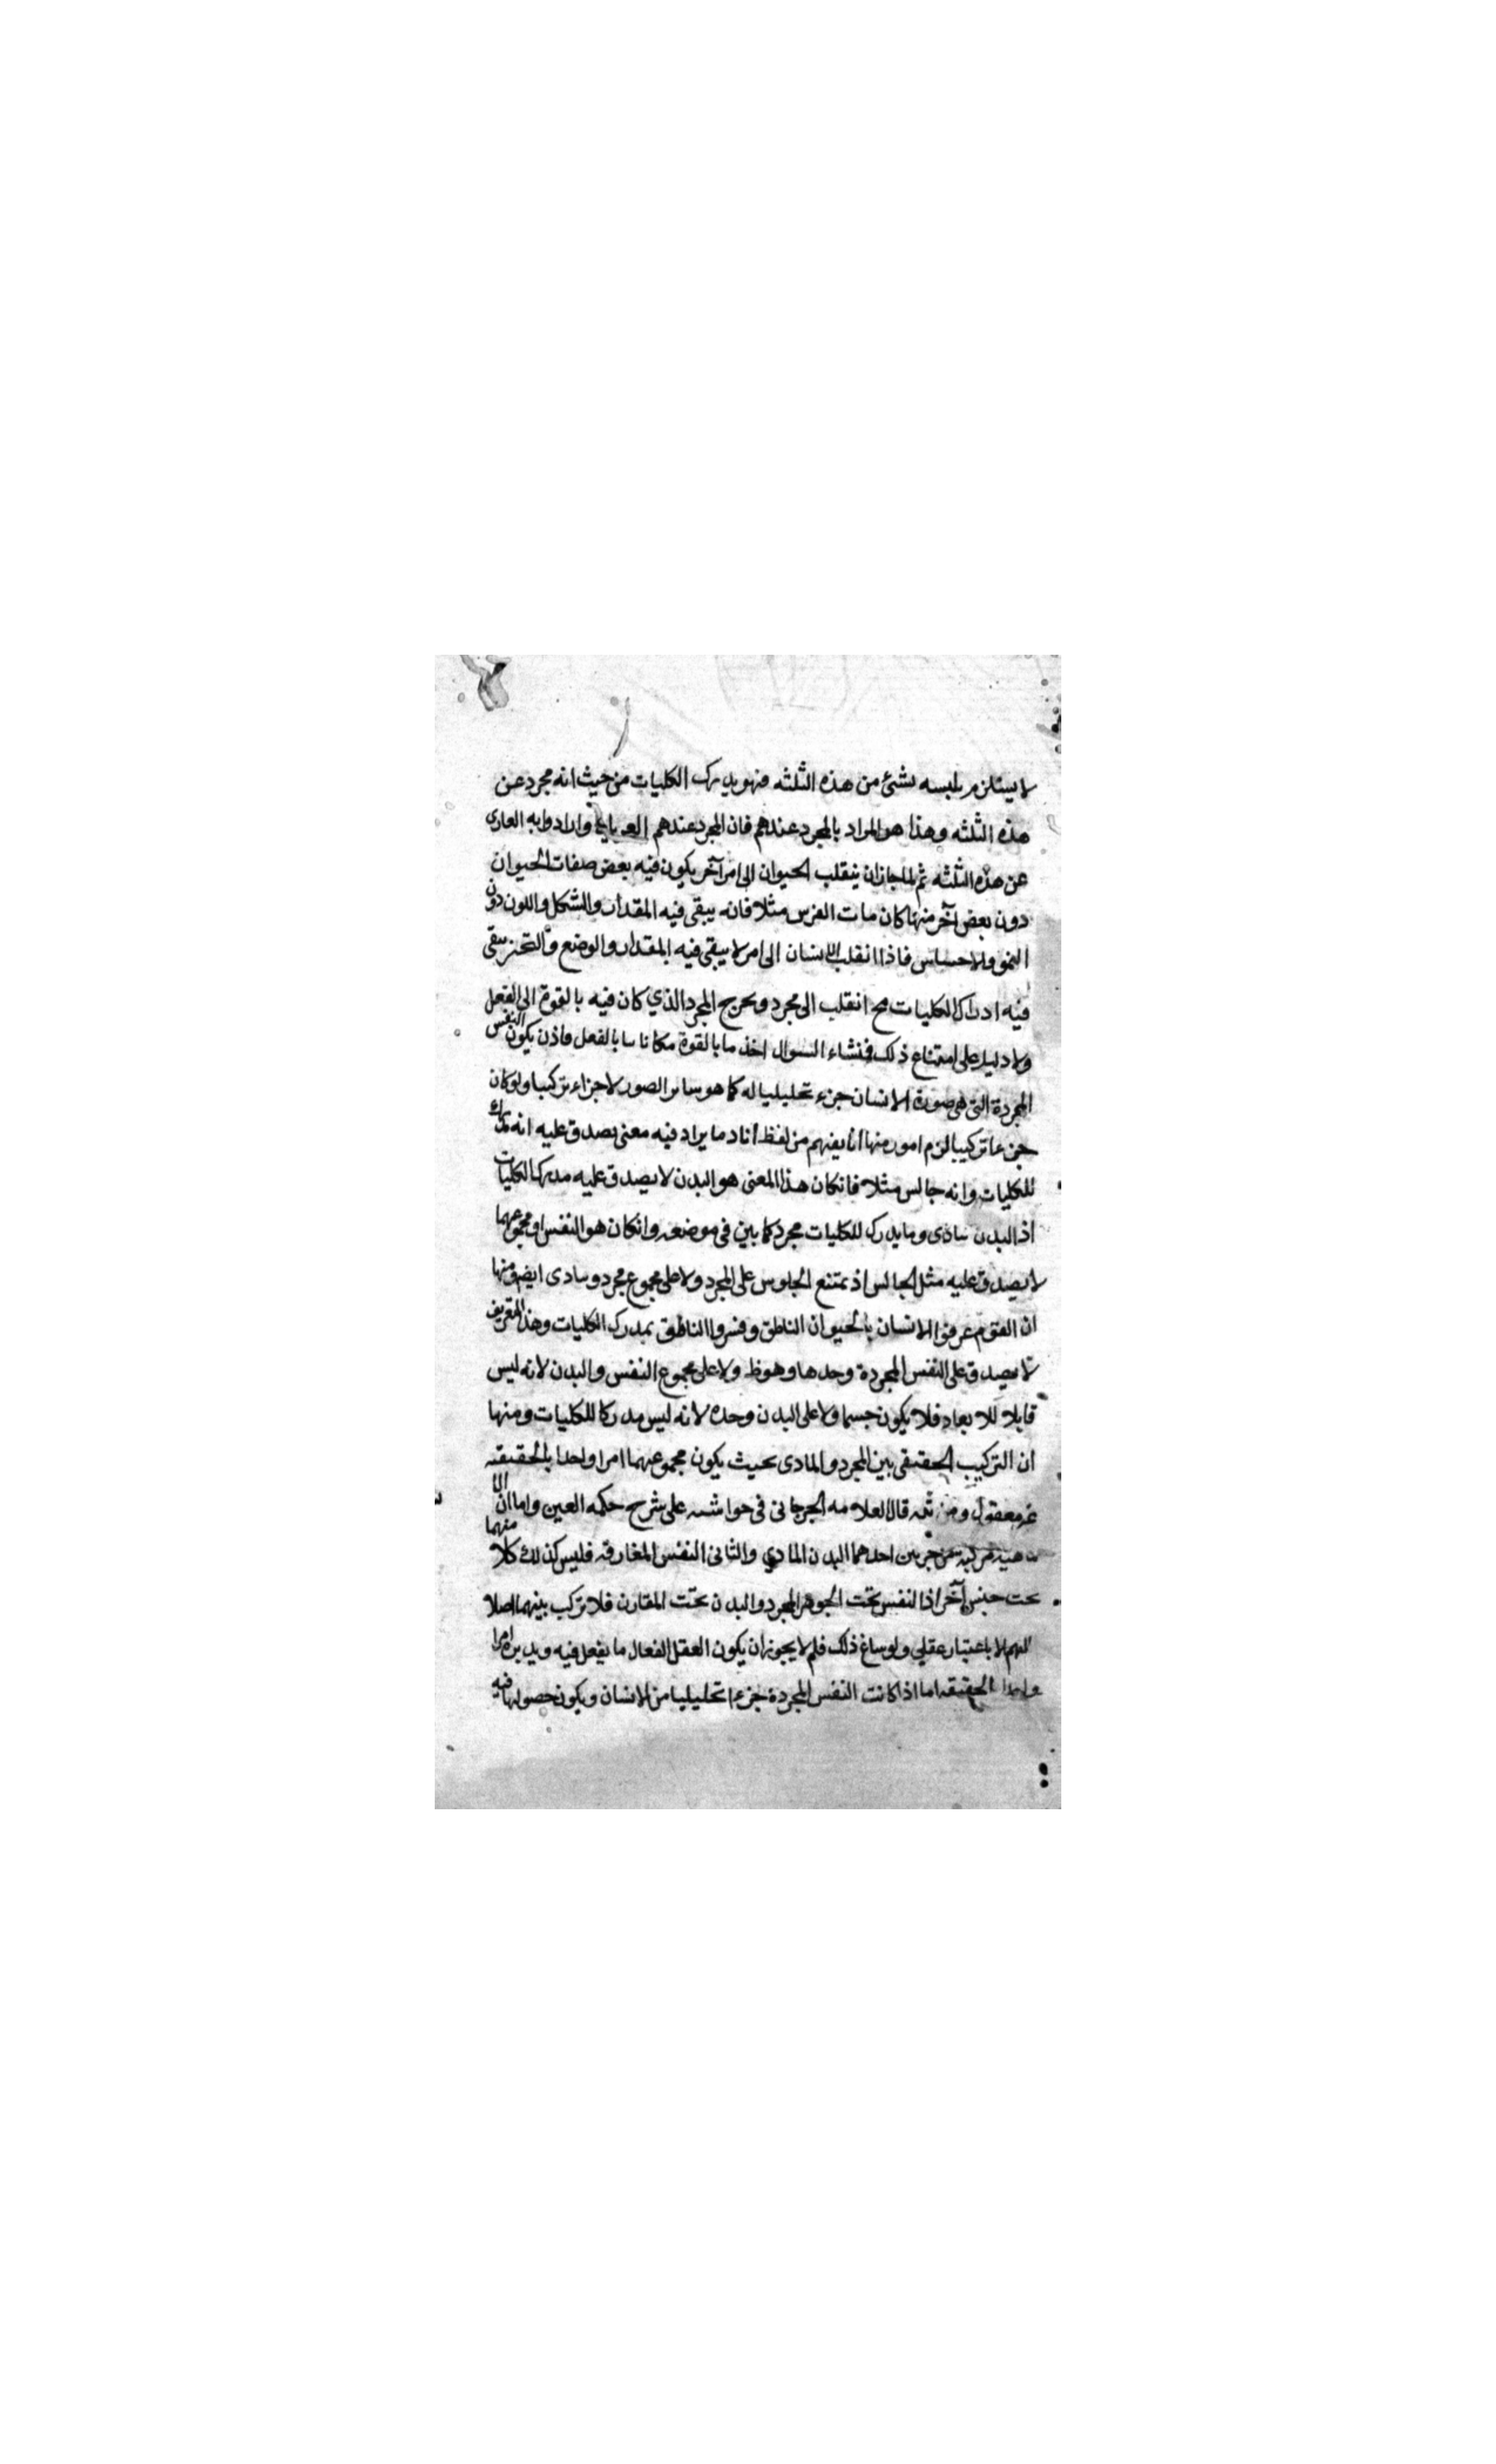 لا يستلزم تلبسه بشئ من هذه الثلثه فهو يدرك الكليات من حيث انه مجرد عن
هذه الثلثه وهذا هو المراد بالمجرد عندهم فان المجرد عندهم وارادوا به العارى
عن هذه الثلثه ثم لما جاز ان ينقلب الحيوان الى امر آخر يكون فيه بعض صفات الحيوان
دون بعض آخر منها كان مات الفرس مثلا فانه يبقى فيه المقدار والشكل واللون دون
النمو والاحساس فاذا انقلب الانسان الى امر لا يبقى فيه المقدار والوضع والتحيز يبقى
فيه ادراك الكليات مح انقلب الى مجرد وبخرج المجرد الذي كان فيه بالقوة الى الفعل
ولا دليل على امتناع ذلك فمنشاء السوال اخذ ما بالقوة مكان ما بالفعل فاذن يكون النفس
المجردة التى هى صورة الانسان جزء تحليليا له كما هو سائر الصور لا جزاء تركيبيا ولو كان
جزءا تركيبيا لزم امور منها انا يفهم من لفظ انا د ما يراد فيه معنى يصدق عليه انه مدرك
للكليات وانه جالس مثلا فانكان هذا المعنى هو البدن لا يصدق عليه مدرك الكليات
اذ البدن مادى وما يدرك للكليات مجرد كما بين فى موضعه وانكان هو النفس او مجموعهما
لا يصدق عليه مثل الجالس اذ يمتنع الجلوس على المجرد ولا على مجموع مجرد ومادى ايضو منها
ان القوم عرفوا الانسان بالحيوان الناطق وفسروا الناطق بمدرك الكليات وهذا التعريف
لا يصدق على النفس المجردة وحدها وهو ظ ولا على مجموع النفس والبدن لانه ليس
قابلا للابعاد فلا يكون جسما ولا على البدن وحده لانه ليس مدركا للكليات ومنها
ان التركيب الحقيقى بين المجرد والمادى بحيث يكون مجموعهما امرا واحدا بالحقيقه
غير معقول ومن ثمه قال العلامه الجرجانى فى حواشيه على شرح حكمه العين واما ان الا
مركبه من جزئين احدهما البدن المادي والثانى النفس المفارقه فليس كذلك كلا منهما
تحت جنس آخر اذ النفس تحت الجوهر المجرد والبدن تحت المقارن فلا تركب بينهما اصلا
اللهم الا باعتبار عقلي ولو ساغ ذلك فلم لا يجوز ان يكون العقل الفعال ما يفعل فيه ويدبره امرا
واحدا بالحقيقه اما اذا كانت النفس المجردة جزءا تحليليا من الانسان ويكون حصولها فيه